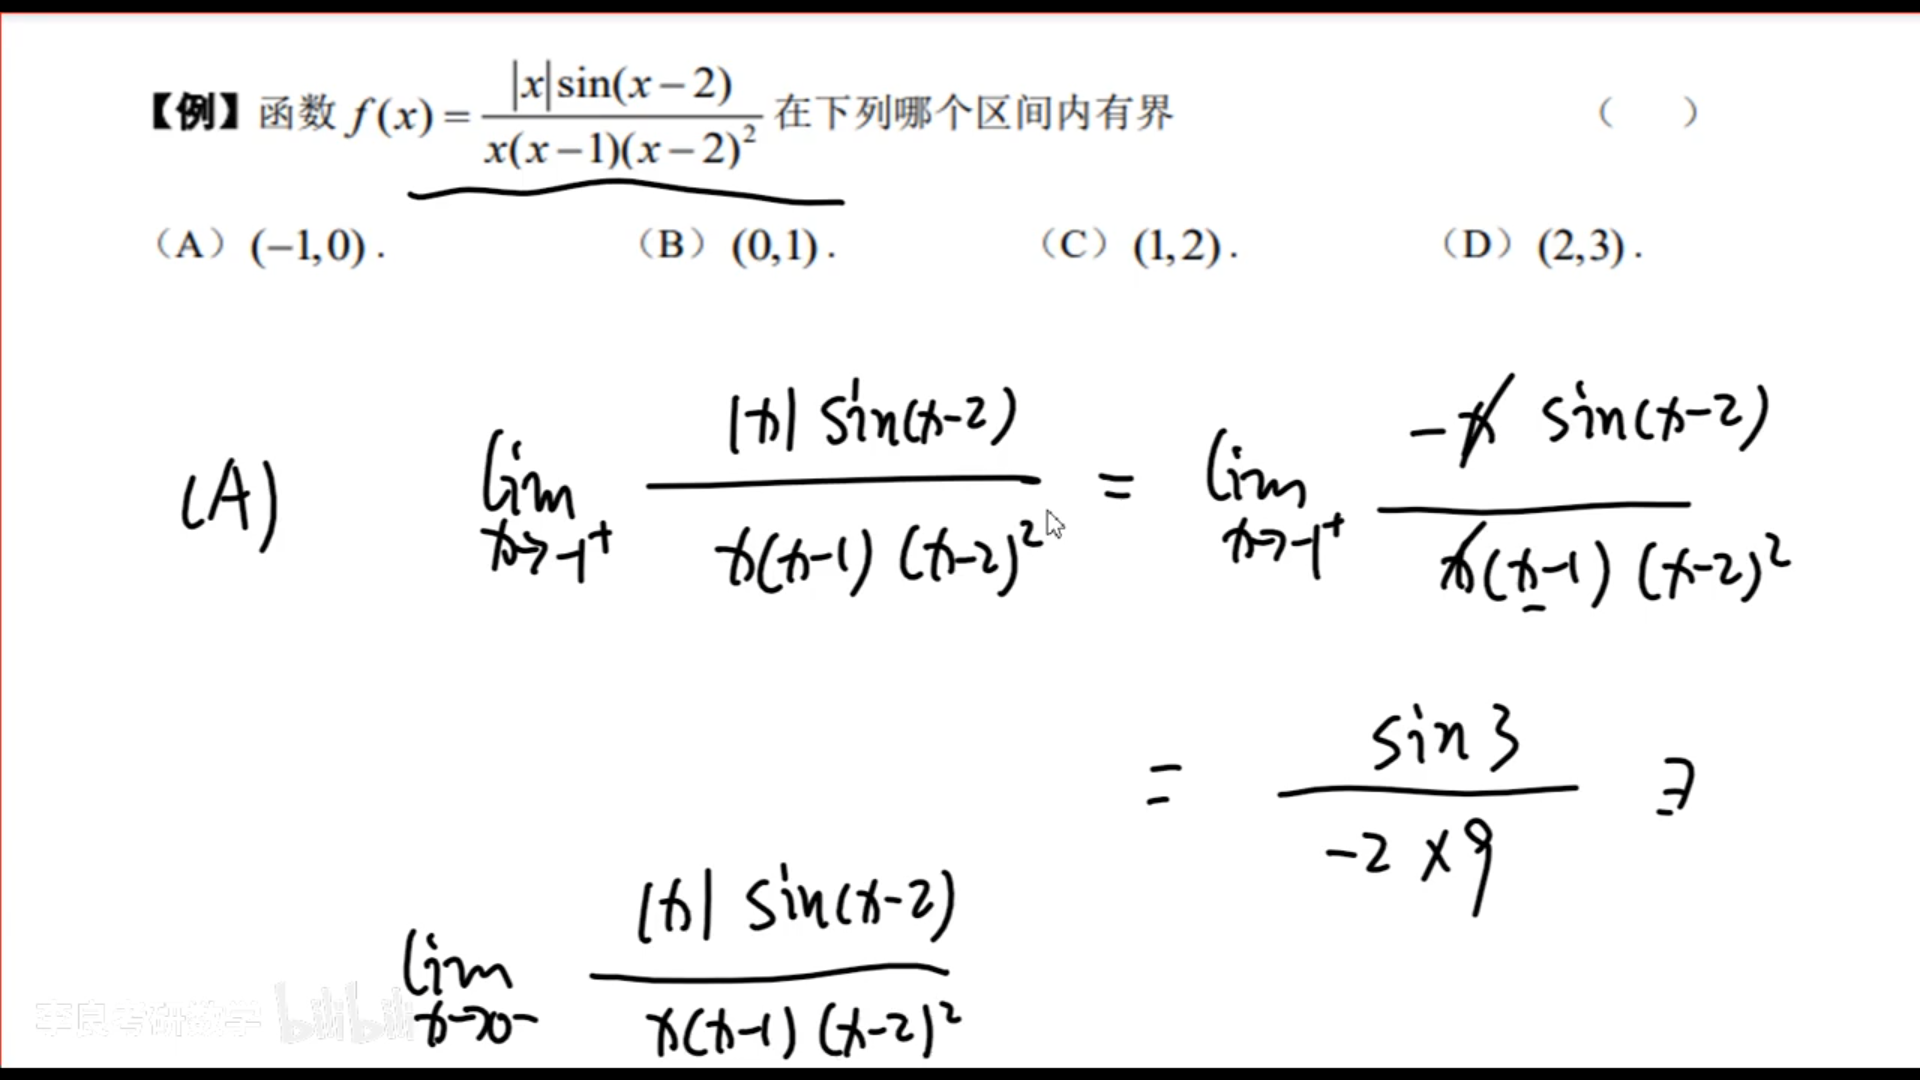 【例】函数 f(x) = |x|sin(x−2) / x(x−1)(x−2)² 在下列哪个区间内有界 （ ）
（A）(−1,0). （B）(0,1). （C）(1,2). （D）(2,3).
(A) lim x→-1⁺ |x| sin(x-2) / x(x-1)(x-2)² = lim x→-1⁺ -x sin(x-2) / x(x-1)(x-2)²
= sin3 / -2×9 ∃
lim x→0- |x| sin(x-2) / x(x-1)(x-2)²
李良考研数学 bilibili